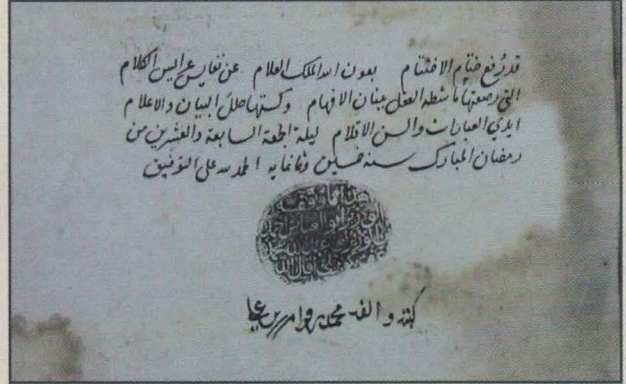 قد رفع ختام الاختتام بعون الله الملك العلام عن نفايس عرايس الكلام
التي رصعتها ماشطة العقل ببنان الافهام وكستها حلل البيان والاعلام
ايدي العبارات والسن الاقلام ليلة الجمعة السابعة والعشرين من
رمضان المبارك سنة خمسين وثمانمايه الحمد لله على التوفيق
هذا ما وقف
الوزير ابو العباس احمد
كتبه والفه محمد بن